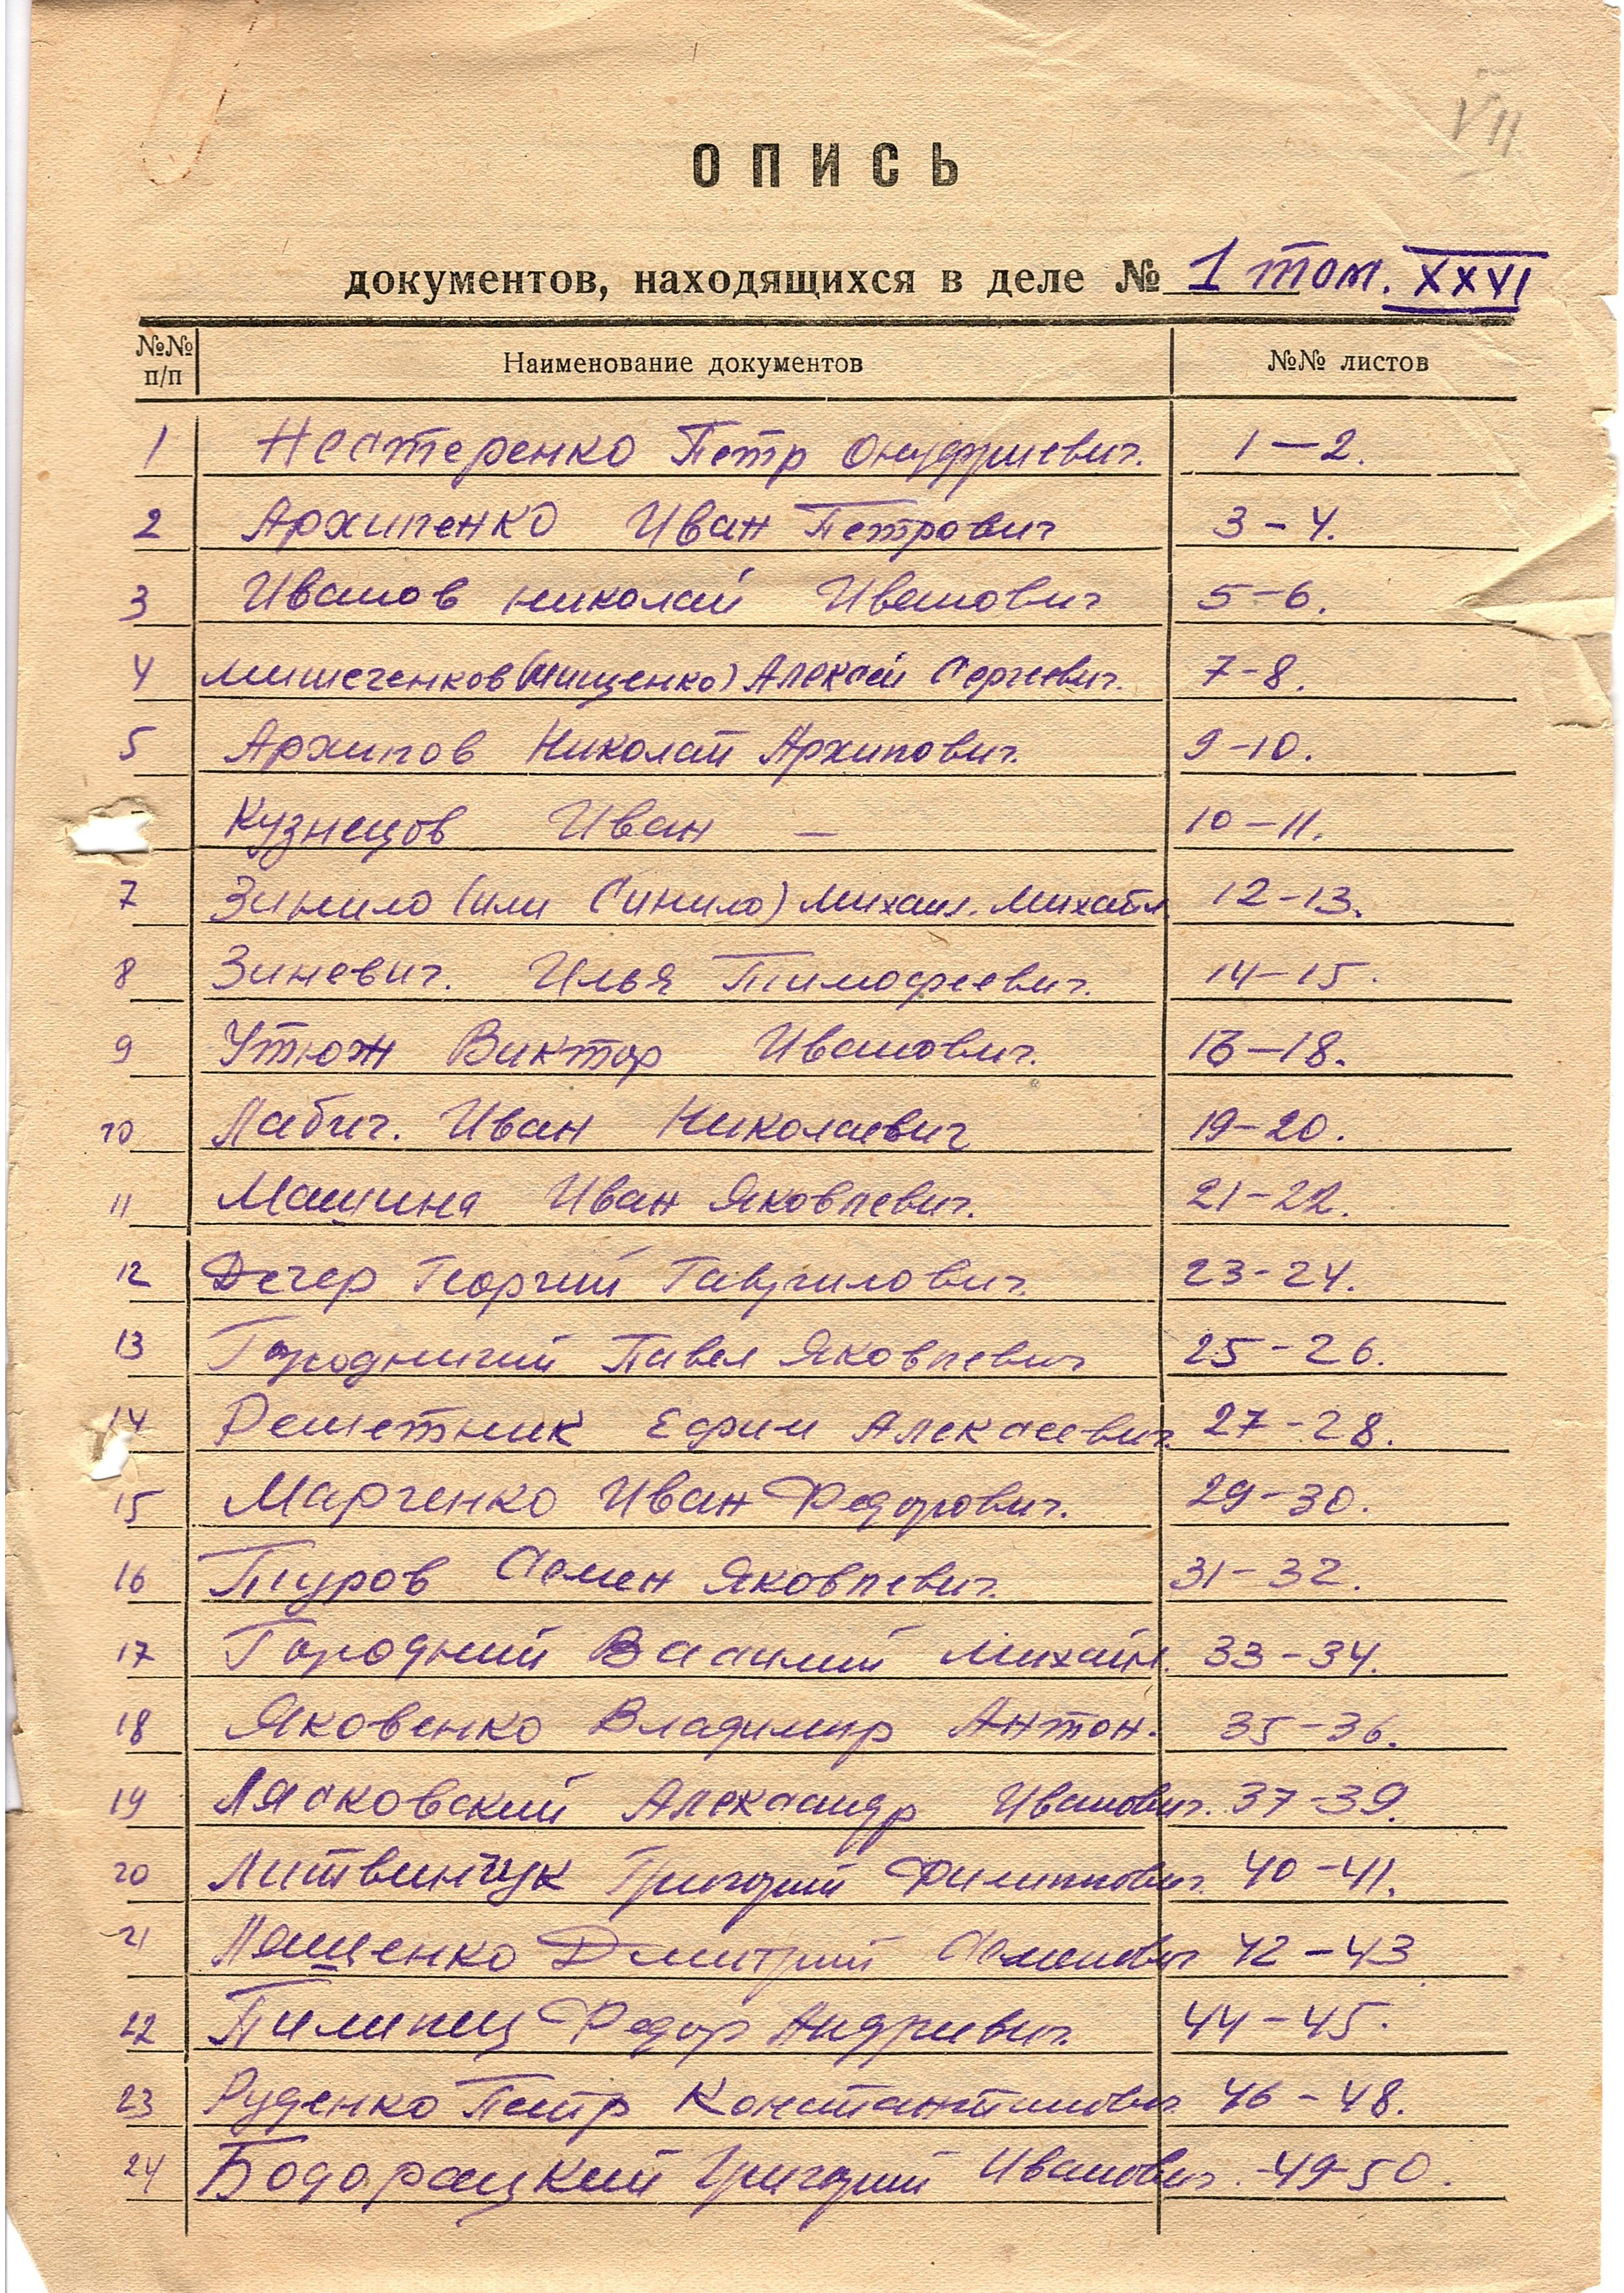 VII
ОПИСЬ
документов, находящихся в деле № 1 том. XXVI
№№ п/п Наименование документов №№ листов
1 Нестеренко Петр Онуфриевич. 1—2.
2 Архипенко Иван Петрович 3-4.
3 Иванов Николай Иванович 5-6.
4 Мишеченков (Мищенко) Алексей Сергеевич. 7-8.
5 Архипов Николай Архипович. 9-10.
Кузнецов Иван — 10-11.
7 Зинило (или Синило) Михаил. Михайл. 12-13.
8 Зиневич. Илья Тимофеевич. 14-15.
9 Утюж Виктор Иванович. 16-18.
10 Лабич. Иван Николаевич 19-20.
11 Машина Иван Яковлевич. 21-22.
12 Дечер Георгий Гаврилович. 23-24.
13 Городничий Павел Яковлевич 25-26.
14 Решетник Ефим Алексеевич. 27-28.
15 Марченко Иван Федорович. 29-30.
16 Туров Семен Яковлевич. 31-32.
17 Городний Василий Михайл. 33-34.
18 Яковенко Владимир Антон. 35-36.
19 Лясковский Александр Иванович. 37-39.
20 Литвинчук Григорий Филиппович. 40-41.
21 Лащенко Дмитрий Семенович 42-43
22 Пилипец Федор Андреевич. 44-45.
23 Руденко Петр Константинович 46-48.
24 Бодорацкий Григорий Иванович. 49-50.